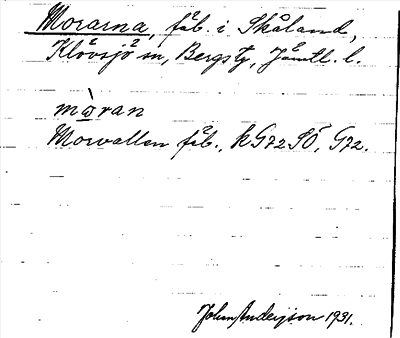 Morarna, fäb. i Skåland,
Klövsjö sn, Bergs tg, Jämtl. l.
mòran
Morvallen fäb., k G72 SÖ, G72.
Johan Anderson 1931.